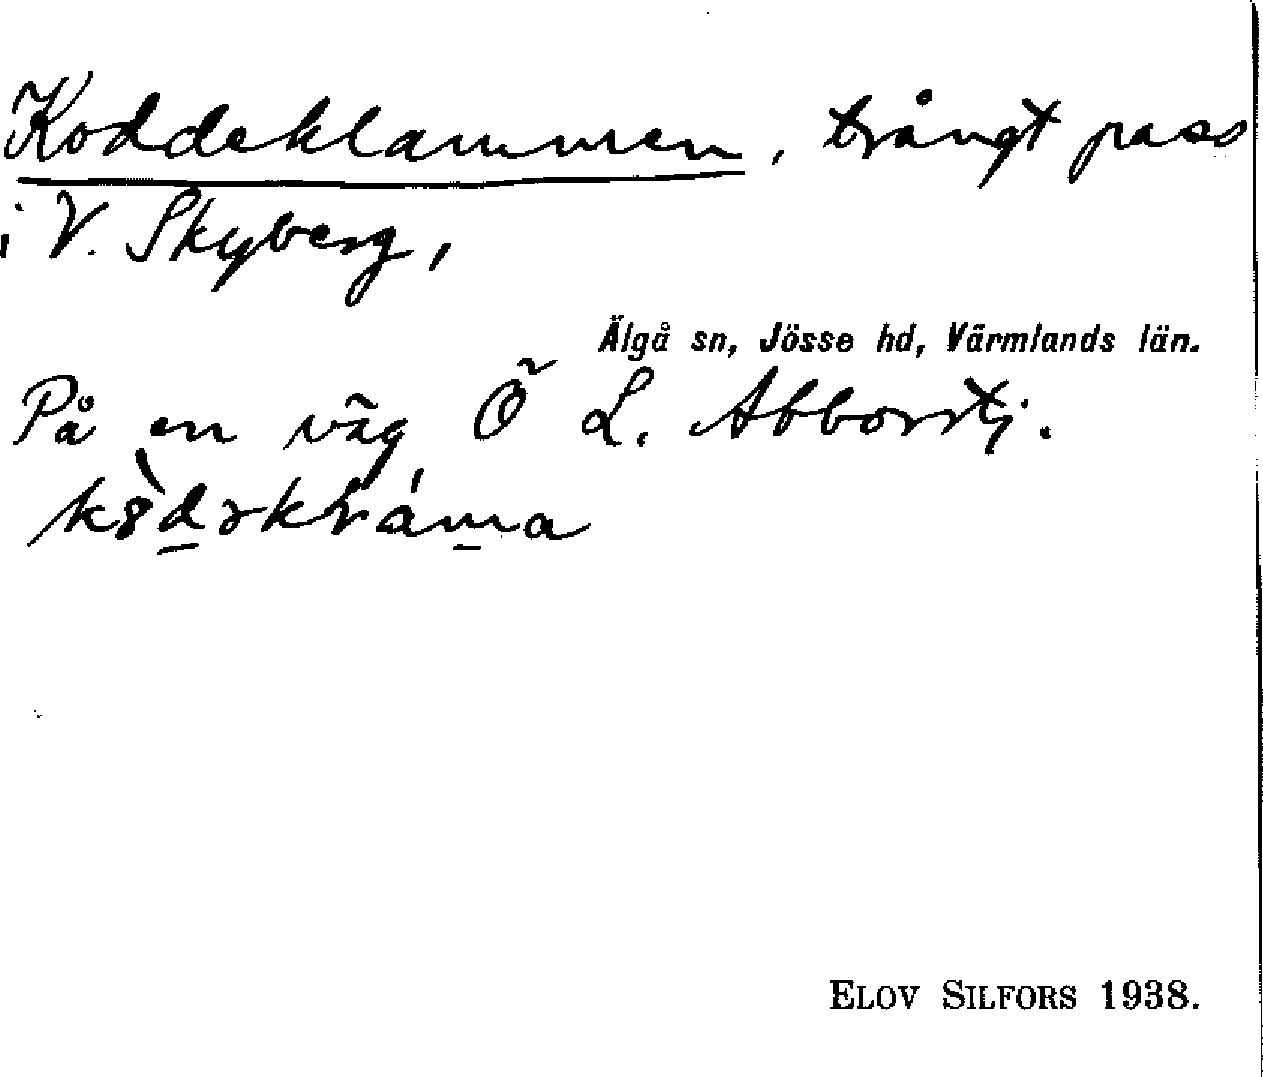 Koddeklammen, trångt pass
i V. Skyberg,
Älgå sn, Jösse hd, Värmlands län.
På en väg Ö L. Abborrtj.
ELOV SILFORS 1938.